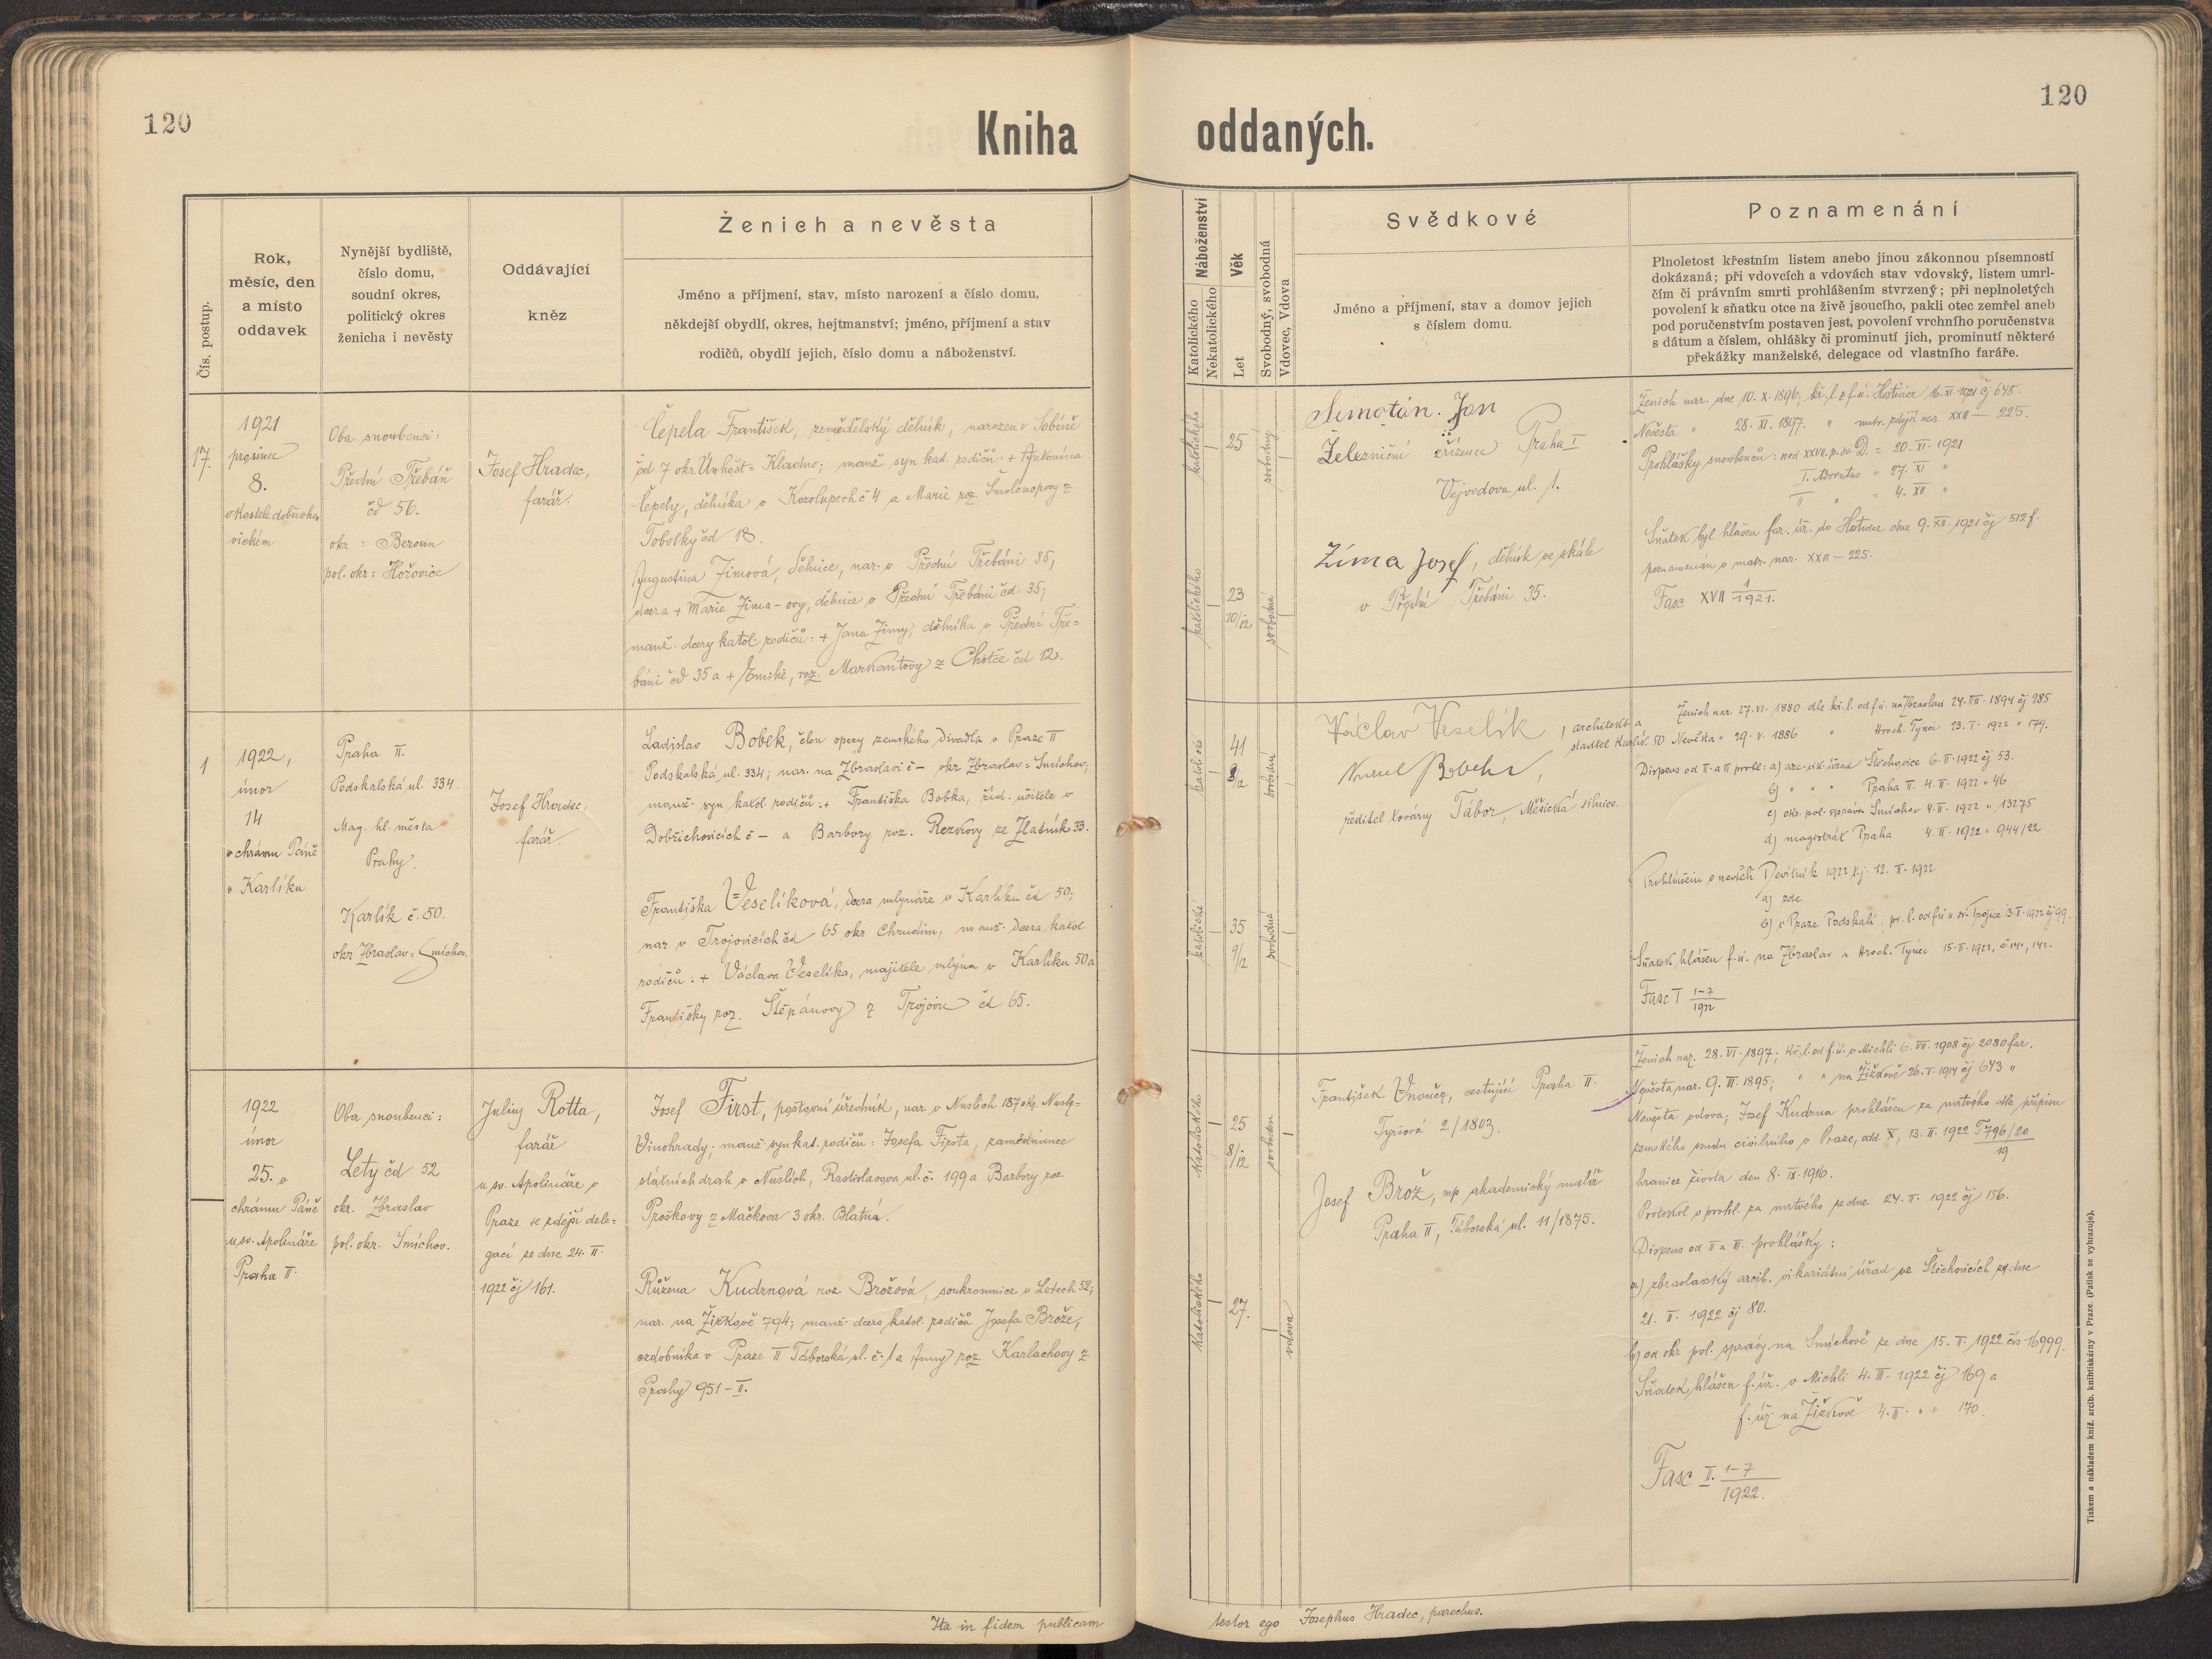 120
120
Kniha oddaných.
Čís. postup.
Rok,
měsíc, den
a místo
oddavek
Nynější bydliště,
číslo domu,
soudní okres,
politický okres
ženicha i nevěsty
Oddávající
kněz
Ženich a nevěsta
Jméno a příjmení, stav, místo narození a číslo domu,
někdejší obydlí, okres, hejtmanství; jméno, příjmení a stav
rodičů, obydlí jejich, číslo domu a náboženství.
Náboženství
Katolického
Nekatolického
Věk
Let
Svobodný, svobodná
Vdovec, Vdova
Svědkové
Jméno a příjmení, stav a domov jejich
s číslem domu.
Poznamenání
Plnoletost křestním listem anebo jinou zákonnou písemností
dokázaná; při vdovcích a vdovách stav vdovský, listem umrl-
čím či právním smrti prohlášením stvrzený; při neplnoletých
povolení k sňatku otce na živě jsoucího, pakli otec zemřel aneb
pod poručenstvím postaven jest, povolení vrchního poručenstva
s dátum a číslem, ohlášky či prominutí jich, prominutí některé
překážky manželské, delegace od vlastního faráře.
17.
1921
prosinec
8.
v Kostele dobřicho-
vickém
Oba snoubenci:
Přední Třebáň
čd 56.
okr: Beroun
pol. okr: Hořovice
Josef Hradec,
farář.
Čepela František, zemědělský dělník, narozen v Sobíně
čd 7 okr Unhošť = Kladno; manž. syn kat. rodičů: + Antonína
Čepely, dělníka v Kozolupech č 4 a Marie roz.
Tobolky čd 18.
Augustina Zimová, dělnice, nar. v Přední Třebáni 35,
dcera + Marie Zima-ovy, dělnice v Přední Třebáni čd 35;
manž. dcery katol. rodičů: + Jana Zimy, dělníka v Přední Tře=
báni čd 35 a + Emilie, roz. Markantovy z Chotče čd 12.
katolického
25
svobodný
katolického
23
10/12
svobodná
Semotán. Jan
Železniční zřízenec Praha I
Vejvodova ul. 1.
Zíma Josef, dělník ve skále
v Přední Třebáni 35.
Ženich nar. dne 10. X. 1896; kř. l. z f. ú. Hostivice 16. XI. 1921 čj 648.
Nevěsta " 28. XI. 1897. " matr. zdejší nar XXII — 225.
Prohlášky snoubenců: ned XXVII. p. sv. D. = 20. XI. 1921
I. Adventus = 27. XI "
II " = 4. XII "
Sňatek byl hlášen far. úř. do Hostivice dne 9. XII. 1921 čj 512 f.
poznamenán v matr. nar. XXII — 225.
Fasc XVII 1/1921.
1
1922,
únor
14
v chrámu Páně
v Karlíku
Praha II.
Podskalská ul. 334.
Mag. hl. města
Prahy.
Karlík č. 50.
okr Zbraslav = Smíchov.
Josef Hradec,
farář.
Ladislav Bobek, člen opery zemského divadla v Praze II
Podskalská ul. 334; nar. na Zbraslavi č — okr Zbraslav = Smíchov,
manž. syn katol. rodičů: + Františka Bobka, říd. učitele v
Dobřichovicích č — a Barbory roz. Rezkovy ze Zlatník 33.
Františka Veselíková, dcera mlynáře v Karlíku čd 50;
nar. v Trojovicích čd 65 okr Chrudim; manž. dcera katol.
rodičů: + Václava Veselíka, majitele mlýna v Karlíku 50 a
Františky roz. Štěpánovy z Trojovic čd 65.
katolické
41
8/12
svobodný
katolické
35
9/12
svobodná
Václav Veselík, architekt a
stavitel Karlík 50
Karel Bobek,
ředitel továrny Tábor, Měšická silnice.
Ženich nar. 27. VI. 1880 dle kř. l. od f. ú. na Zbraslavi 24. VII. 1894 čj 285
Nevěsta " 29. V. 1886 " Hroch. Týnci 23. I. 1922 " 179.
Dispens od II. a III prohl: a) arc. vik. úřad Štěchovice 6. II. 1922 čj 53.
b) " " " Praha II. 4. II. 1922 " 46
c) okr. pol. správa Smíchov 4. II. 1922 " 13275
d) magistrát Praha 4. II. 1922 " 944/22
Prohlášeni v neděli Devítník 1922 t. j. 12. II. 1922
a) zde
b) v Praze Podskalí, pr. l. od f. ú u sv. Trojice 13. II. 1922 čj 99.
Sňatek hlášen f. ú. na Zbraslav a Hroch. Týnec 15. II. 1922, č 141, 142.
Fasc I 1-7/1922
1922
únor
25. v
chrámu Páně
u sv. Apolináře
Praha II.
Oba snoubenci:
Lety čd 52
okr. Zbraslav
pol. okr. Smíchov.
Julius Rotta,
farář
u sv. Apolináře v
Praze se zdejší dele=
gací ze dne 24. II.
1922 čj 161.
Josef Fürst, poštovní úředník, nar. v Nuslích 187 okr. Nusle-
Vinohrady; manž. syn kat. rodičů: Josefa Fürsta, zaměstnance
státních drah v Nuslích, Rastislavova ul. č. 199 a Barbory roz.
Proškovy z Mačkova 3 okr. Blatná.
Růžena Kudrnová roz. Brožová, soukromnice v Letech 52;
nar. na Žižkově 794; manž. dcera katol. rodičů Josefa Brože,
ozdobníka v Praze II Táborská ul. č. 1 a Anny roz Karlachovy z
Prahy 951-II.
Katolického
25
8/12
svoboden
Katolického
27.
vdova
František Vnouček, cestující Praha II.
Tyršová 2/1803.
Josef Brož, mp akademický malíř
Praha II, Táborská ul. 11/1875.
Ženich nar. 28. VI. 1897; kř. l. od f. ú. v Michli 6. VII. 1908 čj 2080 far.
Nevěsta nar. 9. III. 1895; " " na Žižkově 26. I. 1914 čj 673 "
Nevěsta vdova; Josef Kudrna prohlášen za mrtvého dle přípisu
zemského soudu civilního v Praze, odd. X, 13. II. 1922 T 796/20
19
hranice života den 8. IX. 1916.
Protokol o prohl. za mrtvého ze dne 24. II. 1922 čj 156.
Dispens od II a III. prohlášky:
a) zbraslavský arcib. vikariátní úřad ve Štěchovicích ze dne
21. II. 1922 čj 80.
b) od okr pol. správy na Smíchově ze dne 15. II. 1922 čís 16999.
Sňatek hlášen f. úř. v Michli 4. III. 1922 čj 169 a
f. úř na Žižkově 4. III. " " 170.
Fasc II. 1-7/1922.
Ita in fidem publicam testor ego Josephus Hradec, parochus.
Tiskem a nákladem kníž. arcib. knihtiskárny v Praze. (Patisk se vyhrazuje).